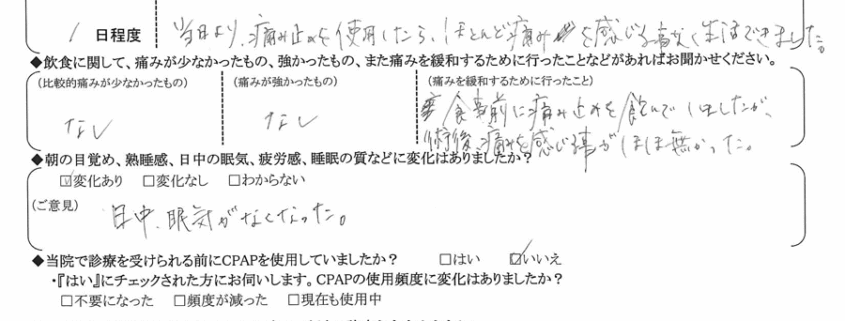 1 日程度 当日より、痛み止めを使用したら、ほとんど痛みを感じる事なく生活できました。
◆飲食に関して、痛みが少なかったもの、強かったもの、また痛みを緩和するために行ったことなどがあればお聞かせください。
(比較的痛みが少なかったもの) (痛みが強かったもの) (痛みを緩和するために行ったこと)
なし なし 食事前に痛み止めを飲んでいましたが、
術後、痛みを感じる事がほぼ無かった。
◆朝の目覚め、熟睡感、日中の眠気、疲労感、睡眠の質などに変化はありましたか?
☑変化あり □変化なし □わからない
(ご意見) 日中、眠気がなくなった。
◆当院で診療を受けられる前にCPAPを使用していましたか? □はい ☑いいえ
・『はい』にチェックされた方にお伺いします。CPAPの使用頻度に変化はありましたか?
□不要になった □頻度が減った □現在も使用中